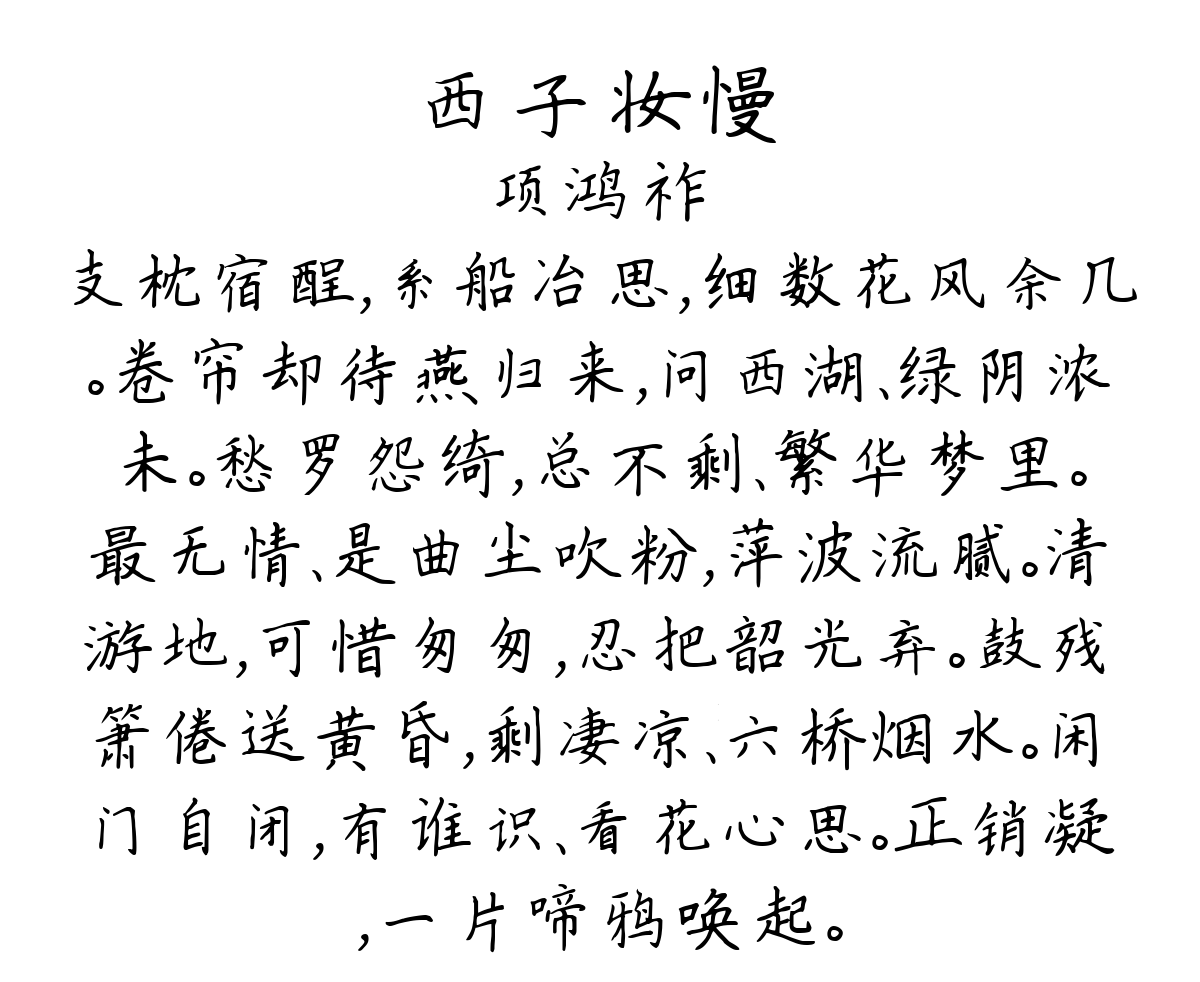 西子妆慢
项鸿祚
支枕宿酲,系船冶思,细数花风余几
。卷帘却待燕归来,问西湖、绿阴浓
未。愁罗怨绮,总不剩、繁华梦里。
最无情、是曲尘吹粉,萍波流腻。清
游地,可惜匆匆,忍把韶光弃。鼓残
箫倦送黄昏,剩凄凉、六桥烟水。闲
门自闭,有谁识、看花心思。正销凝
,一片啼鸦唤起。